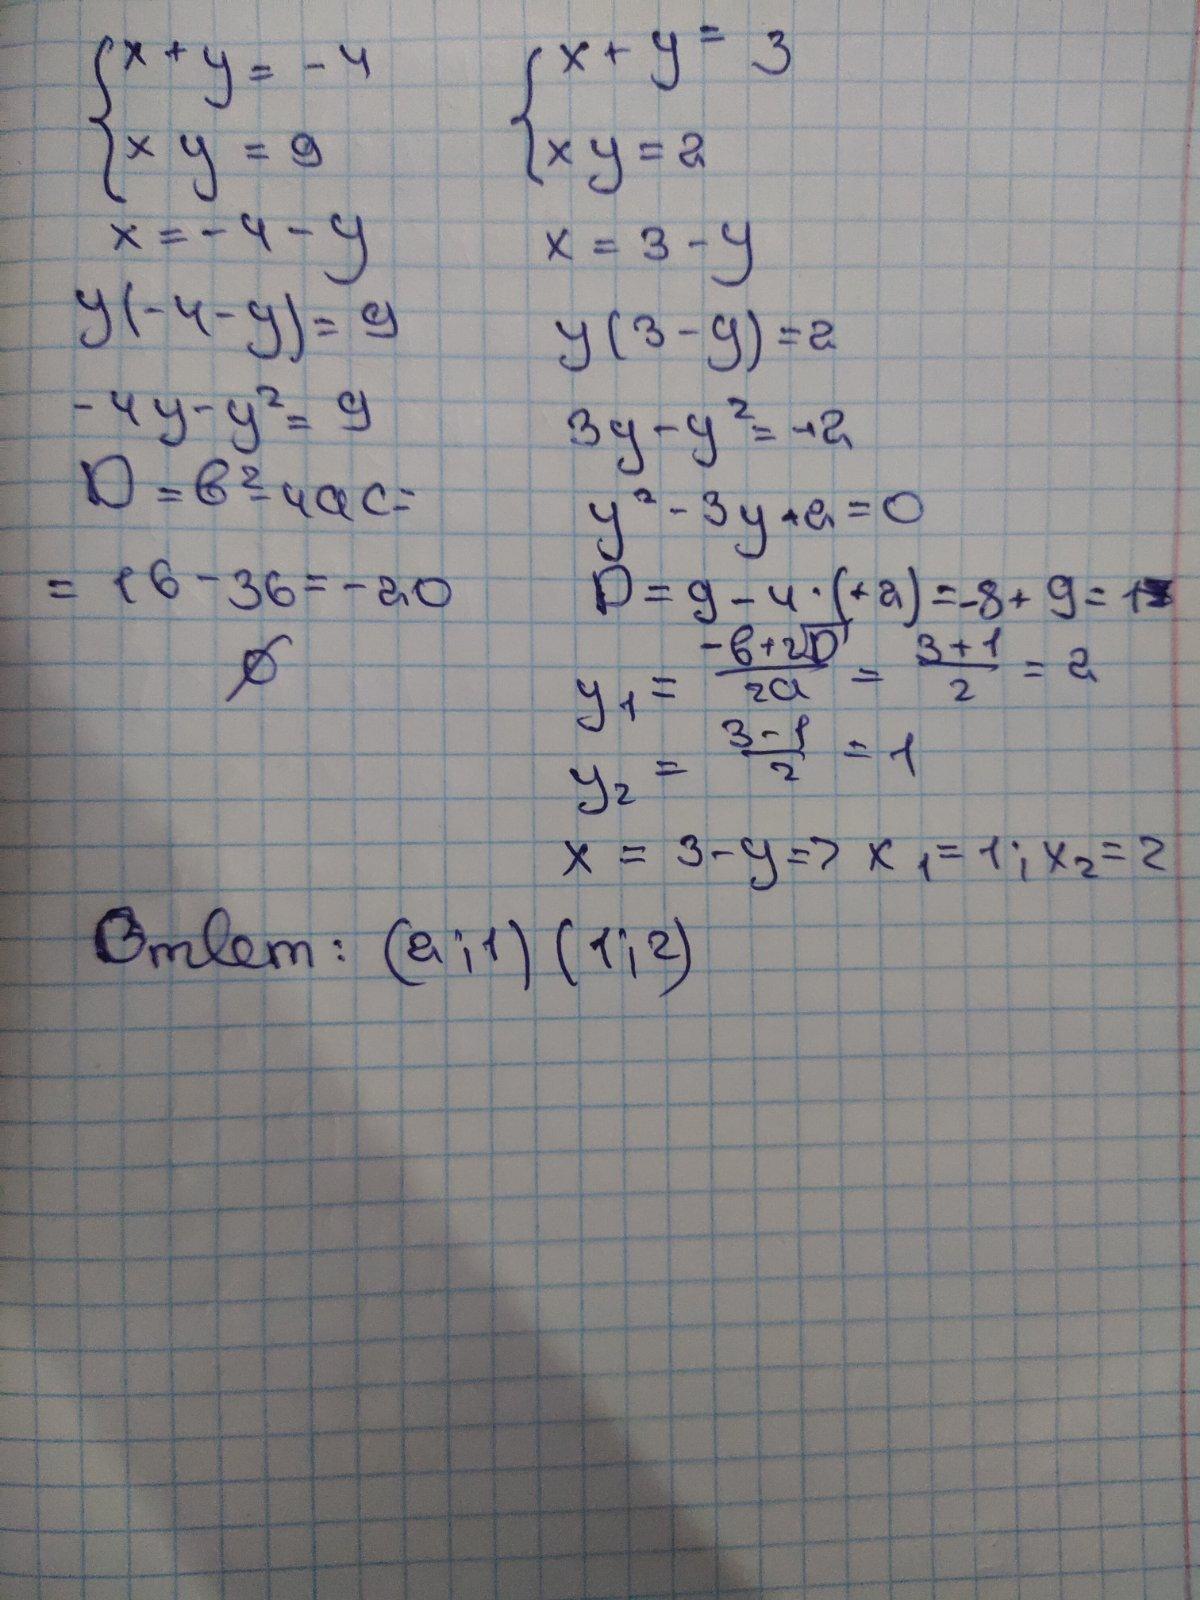 {x + y = -4
{xy = 9
x = -4 - y
y(-4-y) = 9
-4y-y² = 9
D = b²-4ac=
= 16 - 36 = -20
∅
{x + y = 3
{xy = 2
x = 3 - y
y(3-y) = 2
3y-y² = +2
y²-3y+2=0
D = 9 - 4·(+2) = -8 + 9 = 1
y₁ = (-b+√D)/2a = (3+1)/2 = 2
y₂ = (3-1)/2 = 1
x = 3-y => x₁ = 1; x₂ = 2
Ответ: (2;1) (1;2)